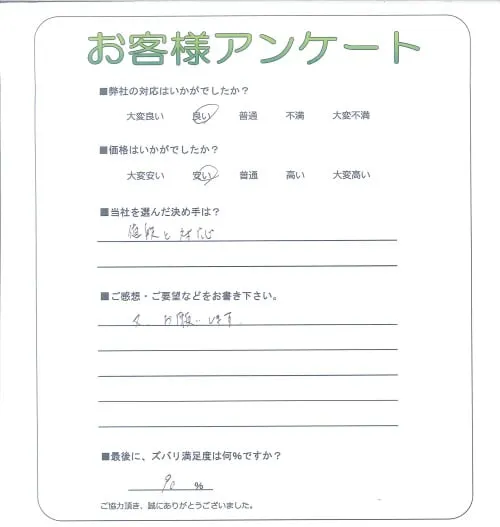 お客様アンケート
■弊社の対応はいかがでしたか?
大変良い 良い 普通 不満 大変不満
■価格はいかがでしたか?
大変安い 安い 普通 高い 大変高い
■当社を選んだ決め手は?
と対応
■ご感想・ご要望などをお書き下さい。
お願いします。
■最後に、ズバリ満足度は何%ですか?
90 %
ご協力頂き、誠にありがとうございました。